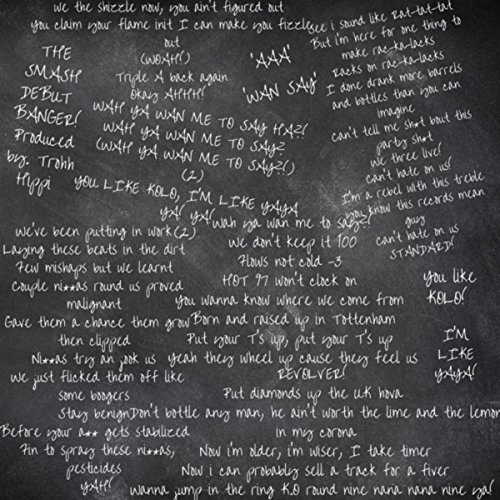 we the shizzle now, you ain't figured out
you claim your flame init I can make you fizzle
out
(WOAH!)
Triple A back again
okay AHHH!
THE
SMASH
DEBUT
BANGER!
Produced
by: Trohh
Hippi
'AAA'
'WAN SAY'
WAH YA WAN ME TO SAY HAZ!
WAH YA WAN ME TO SAYZ
(WAH YA WAN ME TO SAYZ!)
(2)
YOU LIKE KOLO, I'M LIKE YAYA
YA! YA!
see i sound like Rat-tat-tat
But i'm here for one thing to
make rac-ka-lacks
Racks on rac-ka-lacks
I done drank more barrels
and bottles than you can
imagine
can't tell me sh*t bout this
party sh*t
we three live!
can't hate on us!
I'm a rebel with this treble
you know this records mean
guy
can't hate on us
STANDARD!
We've been putting in work(2)
Laying these beats in the dirt
Few mishaps but we learnt
Couple ni**as round us proved
malignant
Gave them a chance them grow
then clipped
Ni**as try an jook us
we just flicked them off like
some boogers
Stay benign
Before your a** gets stabilized
Fin to spray these ni**as,
pesticides
YAH!
'wah ya wan me to say?!'
we don't keep it 100
Flows not cold -3
HOT 97 won't clock on
You wanna know where we come from
Born and raised up in Tottenham
Put your T's up, put your T's up
yeah they wheel up cause they feel us
REVOLVER!
Put diamonds up the U.K hova
Don't bottle any man, he ain't worth the lime and the lemon
in my corona
Now i'm older, i'm wiser, I take timer
Now i can probably sell a track for a fiver
wanna jump in the ring K.O round nine nana nana nine ya!
You like
KOLO!
I'M
LIKE
YAYA!